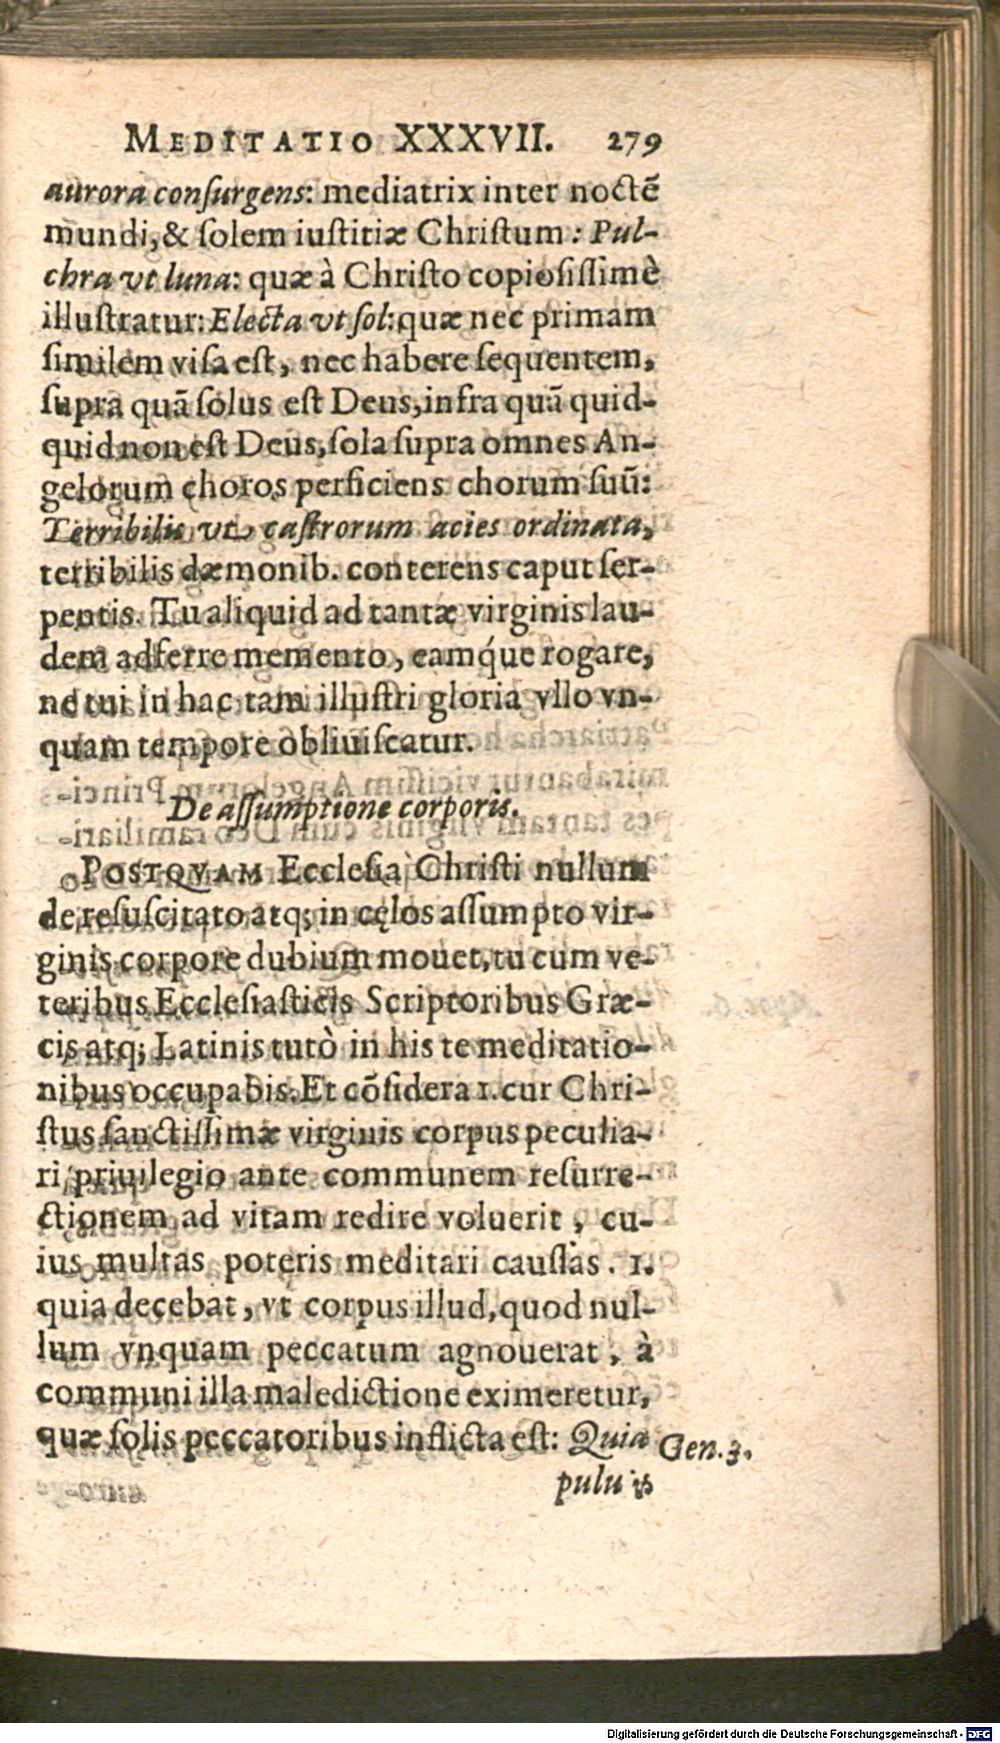 MEDITATIO XXXVII. 279
aurora conſurgens: mediatrix inter noctē
mundi, & ſolem iuſtitiæ Chriſtum: Pul-
chra vt luna: quæ à Chriſto copioſiſſimè
illuſtratur: Electa vt ſol: quæ nec primam
ſimilem viſa eſt, nec habere ſequentem,
ſupra quā ſolus eſt Deus, infra quā quid-
quid non eſt Deus, ſola ſupra omnes An-
gelorum choros perficiens chorum ſuū:
Terribilis vt caſtrorum acies ordinata,
terribilis dæmonib. conterens caput ſer-
pentis. Tu aliquid ad tantæ virginis lau-
dem adferre memento, eamq́ue rogare,
ne tui in hac tam illuſtri gloria vllo vn-
quam tempore obliuiſcatur.
De aſſumptione corporis.
POSTQVAM Eccleſia Chriſti nullum
de reſuſcitato atq; in cęlos aſſumpto vir-
ginis corpore dubium mouet, tu cum ve-
teribus Eccleſiaſticis Scriptoribus Græ-
cis atq; Latinis tutò in his te meditatio-
nibus occupabis. Et cōſidera 1. cur Chri-
ſtus ſanctiſſimæ virginis corpus peculia-
ri priuilegio ante communem reſurre-
ctionem ad vitam redire voluerit, cu-
ius multas poteris meditari cauſſas. 1.
quia decebat, vt corpus illud, quod nul-
lum vnquam peccatum agnouerat, à
communi illa maledictione eximeretur,
quæ ſolis peccatoribus inflicta eſt: Quia Gen. 3.
puluis
Digitalisierung gefördert durch die Deutsche Forschungsgemeinschaft - DFG